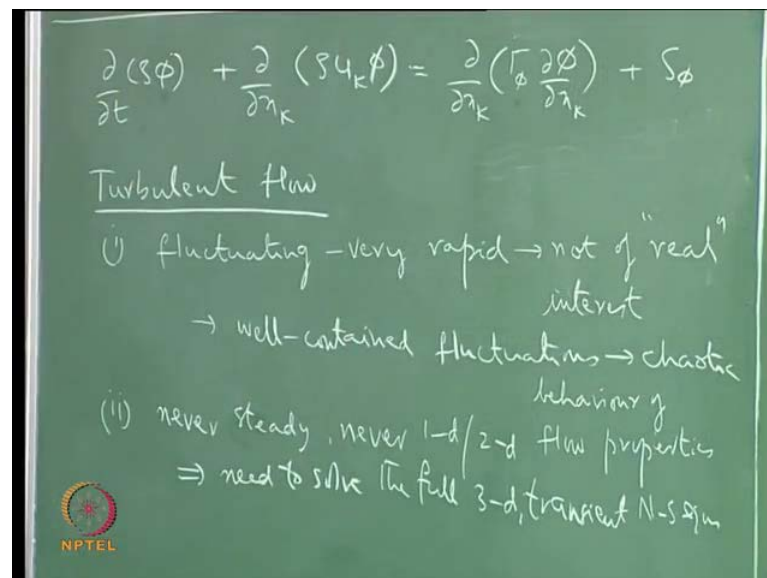 ∂/∂t (ρφ) + ∂/∂x_K (ρu_K φ) = ∂/∂x_K (Γ_φ ∂φ/∂x_K) + S_φ
Turbulent flow
(i) fluctuating - very rapid → not of "real"
interest
→ well-contained fluctuations → chaotic
behaviour of
(ii) never steady, never 1-d/2-d flow properties
⇒ need to solve the full 3-d, transient N-S eqns
NPTEL